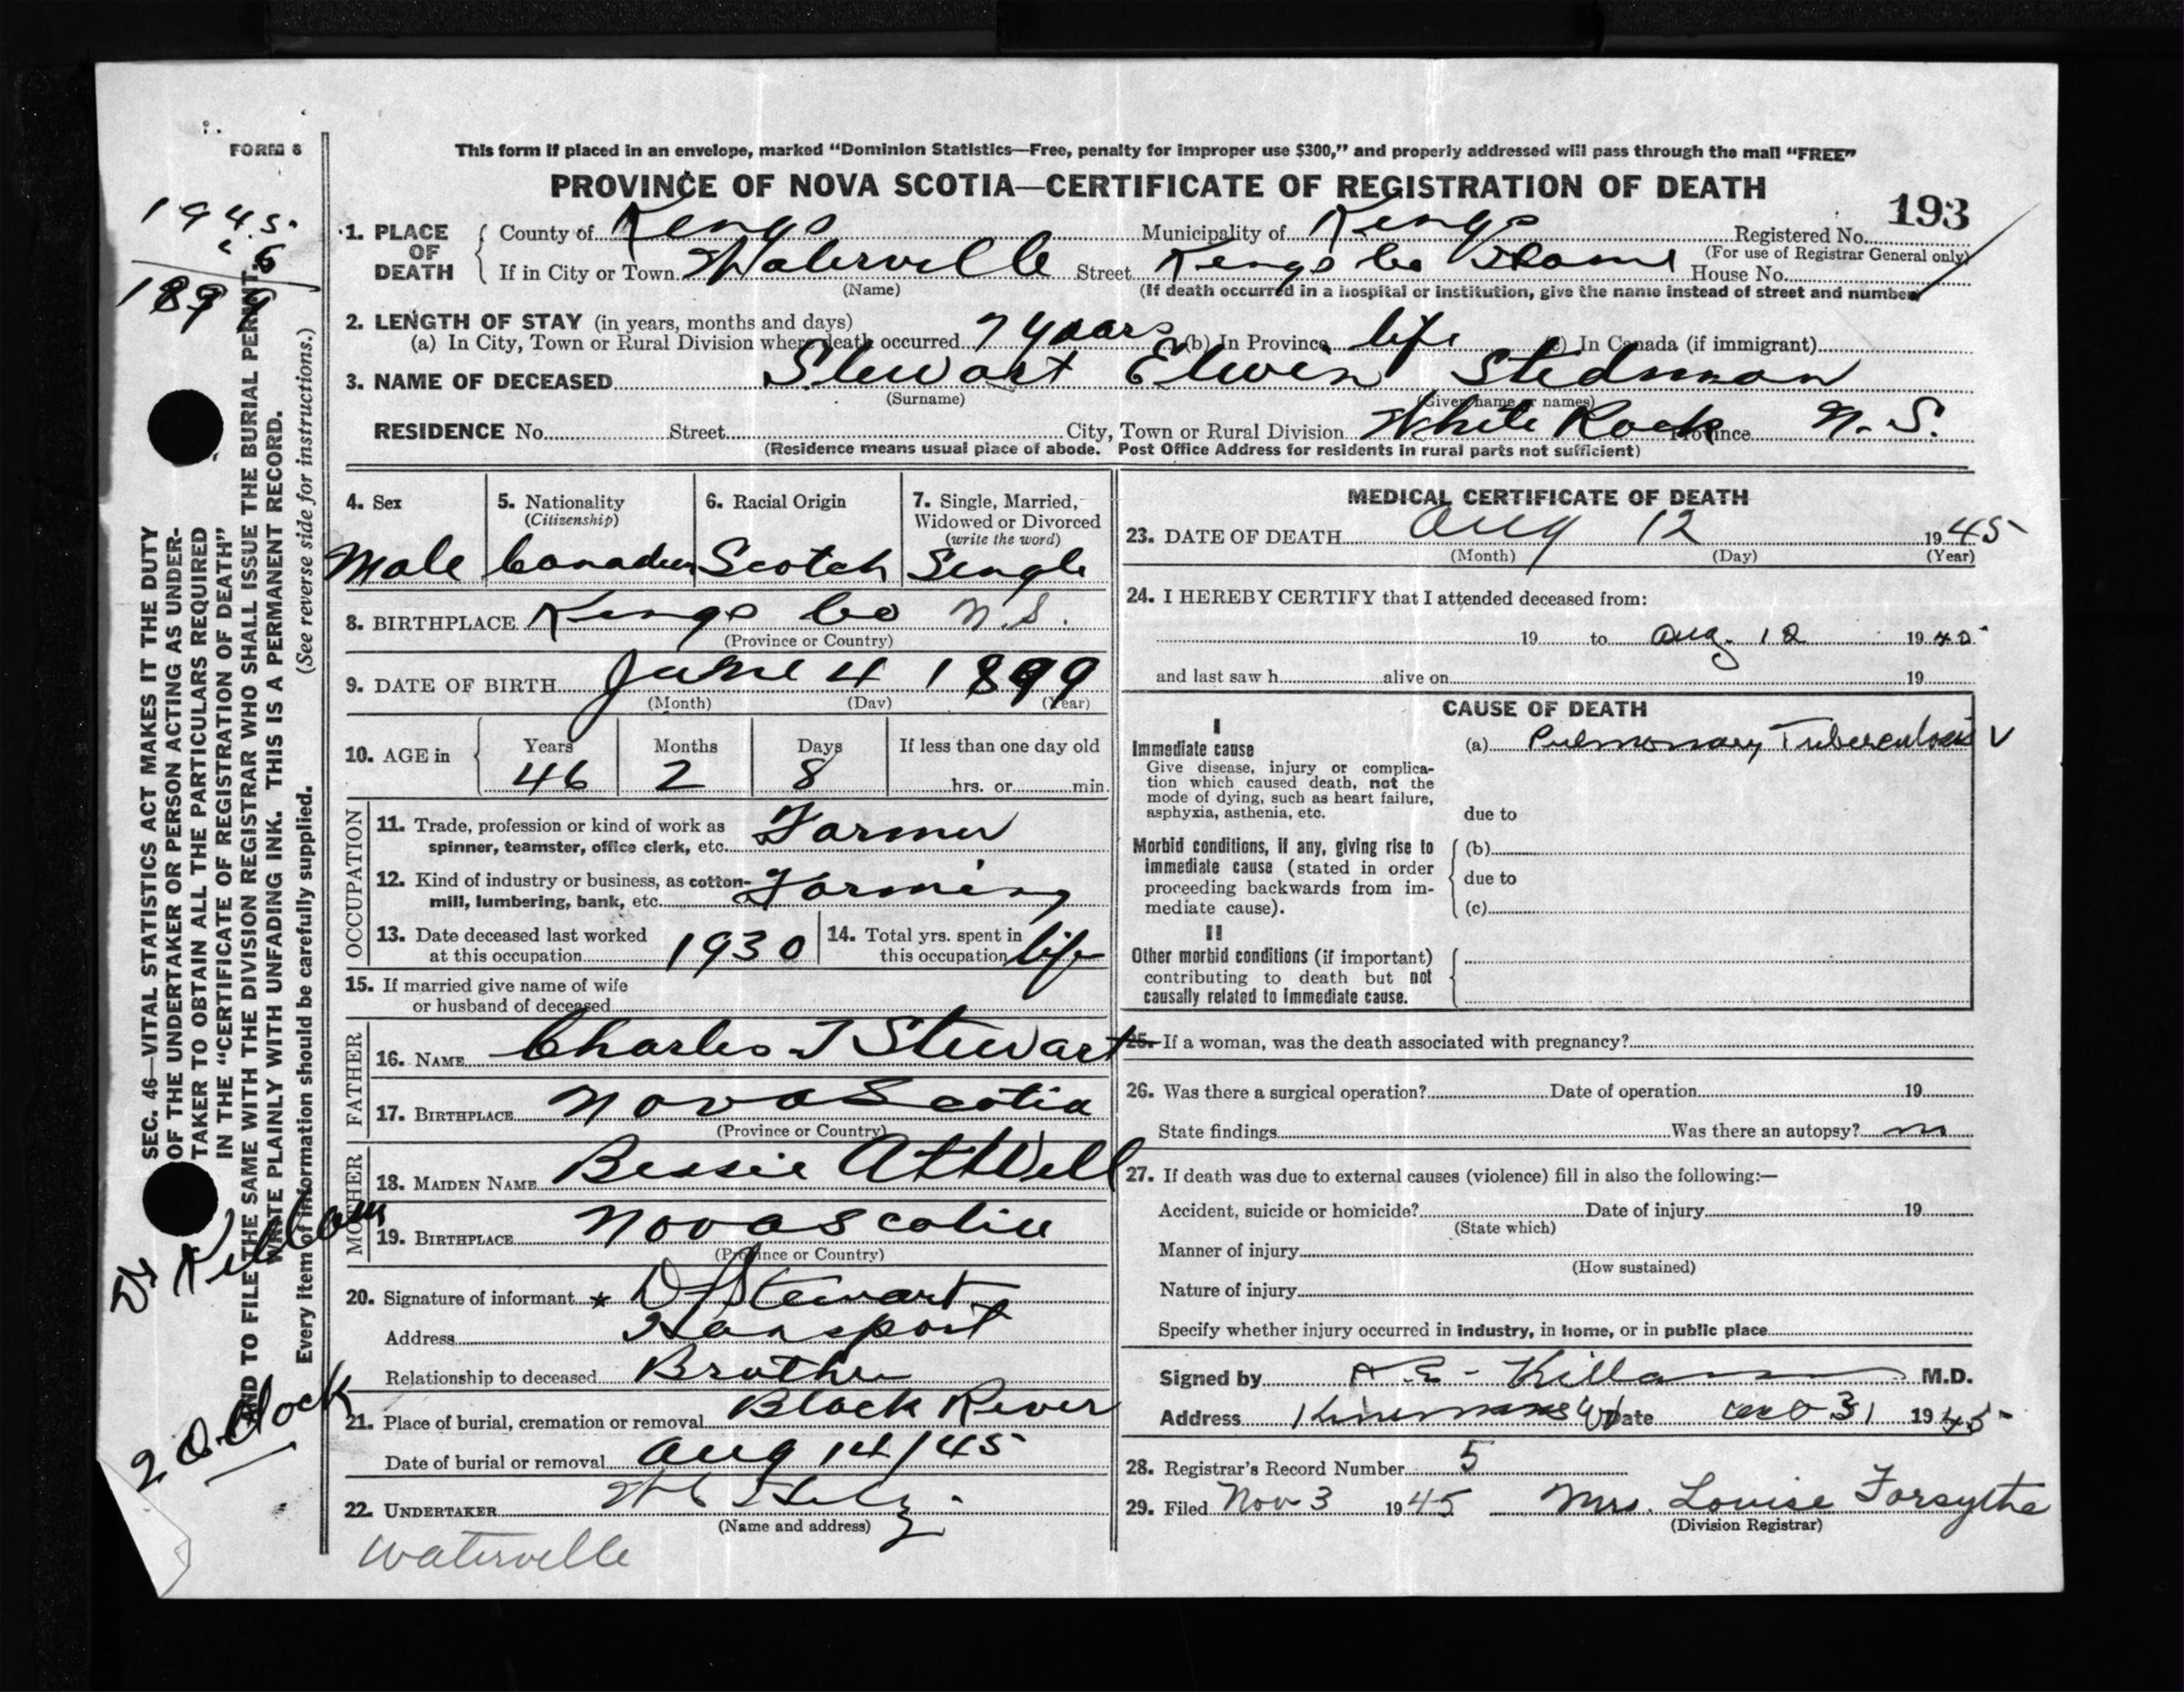 FORM 6
This form if placed in an envelope, marked "Dominion Statistics—Free, penalty for improper use $300," and properly addressed will pass through the mail "FREE"
PROVINCE OF NOVA SCOTIA—CERTIFICATE OF REGISTRATION OF DEATH
193
1. PLACE OF DEATH County of Kings Municipality of Kings Registered No.
(For use of Registrar General only)
If in City or Town Waterville Street Kings Co House No.
(Name) (If death occurred in a hospital or institution, give the name instead of street and number)
2. LENGTH OF STAY (in years, months and days)
(a) In City, Town or Rural Division where death occurred 7 years (b) In Province life (c) In Canada (if immigrant)
3. NAME OF DECEASED Stewart Elwin Stedman
(Surname) (Given name or names)
RESIDENCE No. Street City, Town or Rural Division White Rock Province N. S.
(Residence means usual place of abode. Post Office Address for residents in rural parts not sufficient)
4. Sex
Male
5. Nationality
(Citizenship)
Canadian
6. Racial Origin
Scotch
7. Single, Married,
Widowed or Divorced
(write the word)
Single
8. BIRTHPLACE Kings Co N.S.
(Province or Country)
9. DATE OF BIRTH June 4 1899
(Month) (Day) (Year)
10. AGE in Years Months Days If less than one day old
46 2 8 hrs. or min.
OCCUPATION
11. Trade, profession or kind of work as
spinner, teamster, office clerk, etc. Farmer
12. Kind of industry or business, as cotton-
mill, lumbering, bank, etc. Farming
13. Date deceased last worked
at this occupation 1930
14. Total yrs. spent in
this occupation life
15. If married give name of wife
or husband of deceased
FATHER
16. NAME Charles J Stewart
17. BIRTHPLACE Nova Scotia
(Province or Country)
MOTHER
18. MAIDEN NAME Bessie AtWell
19. BIRTHPLACE Nova Scotia
(Province or Country)
20. Signature of informant Stewart
Address Hansport
Relationship to deceased Brother
21. Place of burial, cremation or removal Black River
Date of burial or removal Aug 14/45
22. UNDERTAKER
(Name and address)
Waterville
MEDICAL CERTIFICATE OF DEATH
23. DATE OF DEATH Aug 12 1945
(Month) (Day) (Year)
24. I HEREBY CERTIFY that I attended deceased from:
19 to Aug. 12 1945
and last saw h alive on 19
CAUSE OF DEATH
I
Immediate cause (a) Pulmonary Tuberculosis
Give disease, injury or complica-
tion which caused death, not the
mode of dying, such as heart failure,
asphyxia, asthenia, etc. due to
Morbid conditions, if any, giving rise to (b)
immediate cause (stated in order
proceeding backwards from im- due to
mediate cause). (c)
II
Other morbid conditions (if important)
contributing to death but not
causally related to immediate cause.
25. If a woman, was the death associated with pregnancy?
26. Was there a surgical operation? Date of operation 19
State findings Was there an autopsy? no
27. If death was due to external causes (violence) fill in also the following:—
Accident, suicide or homicide? Date of injury 19
(State which)
Manner of injury
(How sustained)
Nature of injury
Specify whether injury occurred in industry, in home, or in public place
Signed by Killam M.D.
Address Date 31 1945
28. Registrar's Record Number 5
29. Filed Nov 3 1945 Mrs. Louise Forsythe
(Division Registrar)
1945
46
1899
SEC. 46—VITAL STATISTICS ACT MAKES IT THE DUTY
OF THE UNDERTAKER OR PERSON ACTING AS UNDER-
TAKER TO OBTAIN ALL THE PARTICULARS REQUIRED
IN THE "CERTIFICATE OF REGISTRATION OF DEATH"
AND TO FILE THE SAME WITH THE DIVISION REGISTRAR WHO SHALL ISSUE THE BURIAL PERMIT.
WRITE PLAINLY WITH UNFADING INK. THIS IS A PERMANENT RECORD.
Every item of information should be carefully supplied. (See reverse side for instructions.)
Dr Killam
2 O.Clock